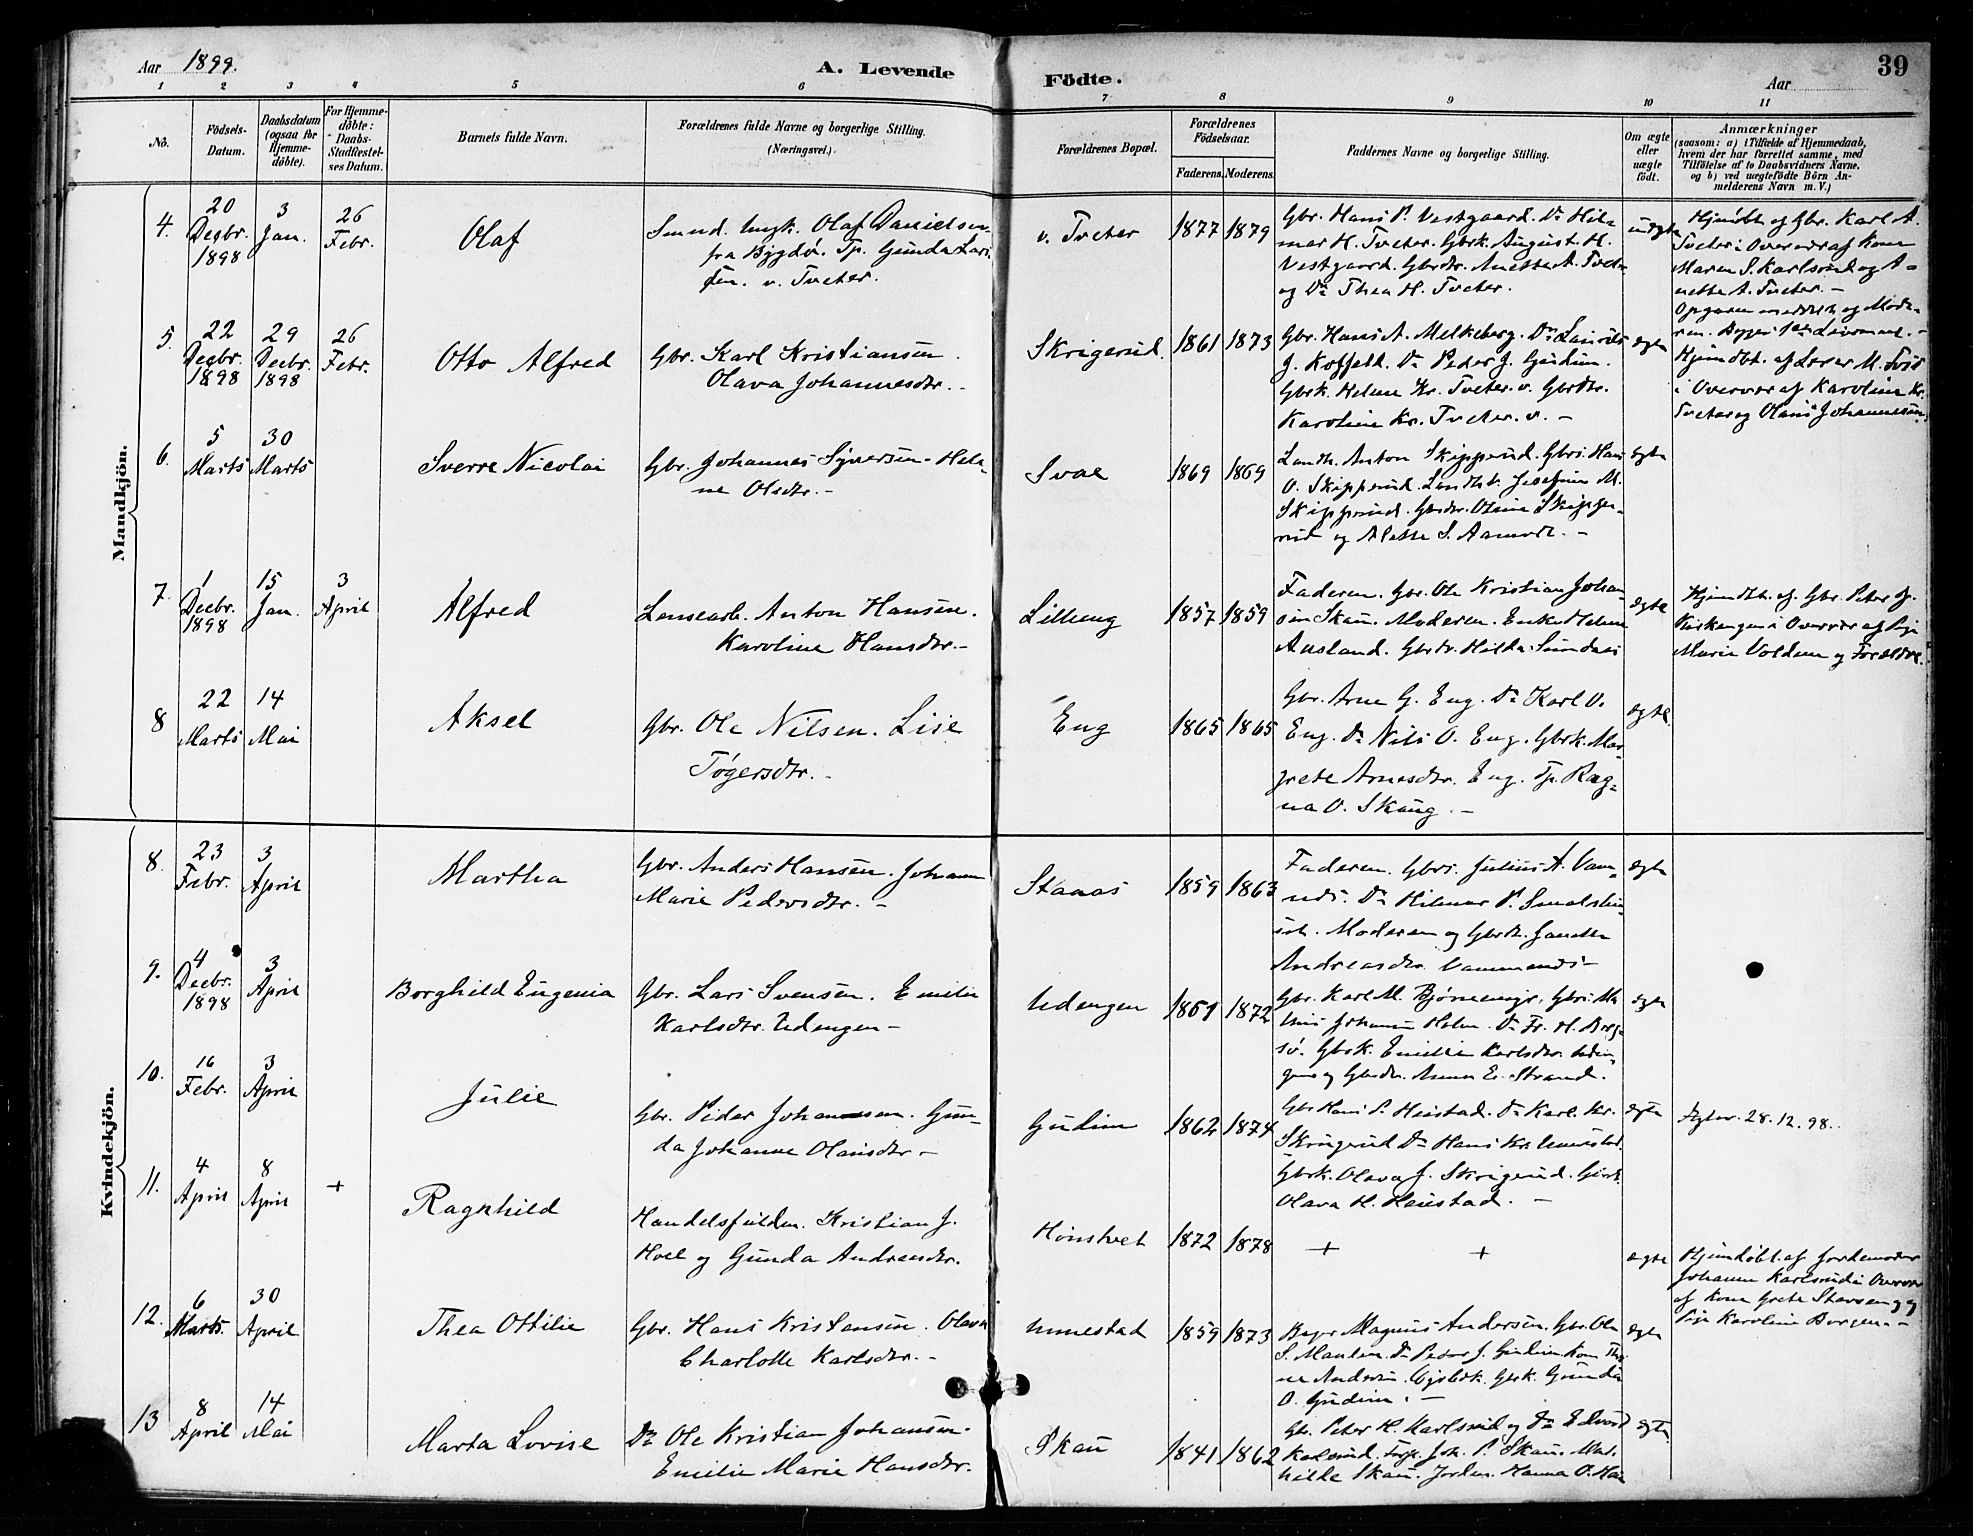 Aar 1899.
A. Levende Födte.
Aar
39
1 2 3 4 5 6 7 8 9 10 11
No.
Födsels-Datum.
Daabsdatum (ogsaa for Hjemmedöbte).
For Hjemmedöbte: Daabs-Stadfæstelses Datum.
Barnets fulde Navn.
Forældrenes fulde Navne og borgerlige Stilling.
(Næringsvei.)
Forældrenes Bopæl.
Forældrenes Födselsaar.
Faderens. Moderens.
Faddernes Navne og borgerlige Stilling.
Om ægte eller uægte födt.
Anmærkninger
(saasom: a) i Tilfælde af Hjemmedaab,
hvem der har forrettet samme, med
Tilföielse af to Daabsvidners Navne,
og b) ved uægtefödte Börn Anmelderens Navn m. V.)
Mandkjön.
4. 20 Decbr. 1898 3 Jan. 26 Febr. Olaf
Olaf Danielsen
fra Bygdø. Tp. Gunda Lari
sen. v. Tveter.
v. Tveter 1877 1879
Gbr. Hans P. Vestgaard. Do Hil-
mar H. Tveter. Gbrk. August. H.
Vestgaard. Gbrdtr. Anette A. Tvet-
og Do Thea H. Tveter.
uægte
Hjmdbt af Gbr. Karl A.
Tveter i Overvær af Kone
Maren S. Karlsrud og A-
nette A. Tveter. -
5. 22 Decbr. 1898 29 Decbr. 1898 26 Febr. Otto Alfred
Gbr. Karl Kristiansen.
Olava Johannesdtr. -
Skrigerud 1861 1873
Gbr. Hans A. Melkeberg. Do Laurits
J. Koffjeld. Do Peder J. Gudim.
Gbrk. Helene Kr. Tveter. v. Gbrdtr.
Karoline Kr. Tveter. v. -
ægte
Hjmdbt. af Lærer M. Tvit
i Overvær af Karoline Kr.
Tveter og Olaus Johannesen
6. 5 Marts 30 Marts Sverre Nicolai
Gbr. Johannes Syversen. Hele-
ne Olsdtr. -
Svae 1869 1869
Landh. Anton Skipperud. Gbrs. Hans
O. Skipperud. Landhk. Josefine M.
Skipperud. Gbrdtr. Oline Skippe-
rud og Alette S. Aamodt. -
ægte
7. 1 Decbr. 1898 15 Jan. 3 April Alfred
Lensearb. Anton Hansen.
Karoline Hansdtr. -
Lilleeng 1857 1859
Faderen. Gbr. Ole Kristian Johan-
sen Skau. Moderen. Enke Helene
Aasland. Gbrdtr. Hilda Sundnes
ægte
Hjmdbt. af Gbr. Peter J.
Kirkengen i Overvær af Pige
Marie Volden og Forældre.
8 22 Marts 14 Mai Aksel
Gbr. Ole Nilsen. Lise
Tøgersdtr. -
Eng 1865 1865
Gbr. Arne G. Eng. Do Karl O.
Eng. Do Nils O. Eng. Gbrk. Mar-
grete Arnesdtr. Eng. Tp. Rag-
na O. Skaug. -
ægte
Kvindekjön.
8. 23 Febr. 3 April Martha
Gbr. Anders Hansen. Johanne
Marie Pedersdtr. -
Staaas 1859 1863
Faderen. Gbrs. Julius A. Vam-
nds. Do Hilmar P.
Moderen og Gbrdtr. Janette
Andreasdtr.
ægte
9. 4 Decbr. 1898 3 April Borghild Eugenia
Gbr. Lars Svensen. Emilie
Karlsdtr. Udengen -
Udengen 1861 1872
Gbr. Karl M. Gbrs.
Johannes Holm. Do Fr. H. Berg-
Gbrk. Emilie Karlsdtr. Uden-
gen og Gbrdtr. Anna E. Strand.
ægte
10. 16 Febr. 3 April Julie
Gbr. Peder Johannesen. Gun-
da Johanne Olausdtr -
Gudim 1862 1874
Gbr Hans P. Heiestad. Do Karl. Kr.
Skrigerud Do Hans Kr. Unnestad.
Gbrk. Olava J. Skrigerud. Gbrk.
Olava H. Heiestad. -
ægte
Ægtev. 28.12.98.
11. 4 April 8 April + Ragnhild
Handelsfuldm. Kristian J.
Hoel og Gunda Andreasdtr.
Hønstvet 1872 1878 + + ægte
Hjemdøbt. af Jordemoder
Johanne Karlsrud i Overvær
af Kone Grete Stavseng og
Pige Karoline Borgen. -
12. 6 Marts. 30 April Thea Ottilie
Gbr. Hans Kristiansen. Olava
Charlotte Karlsdtr. -
Unnestad 1859 1873
Magnus Andersen. Gbr. Ole
S. Maulen. Do Peder J. Gudim. Kone
Gbrk. Gunda
O. Gudim. -
ægte
13 8 April 14 Mai Marta Lovise
Do Ole Kristian Johansen.
Emilie Marie Hansdtr.
Skau 1841 1862
Gbr. Peter H. Karlsrud og Do Edvard
Karlsrud. Joh. P. Skau. Mat-
hilde Skau. Jordm. Hanna O.
ægte